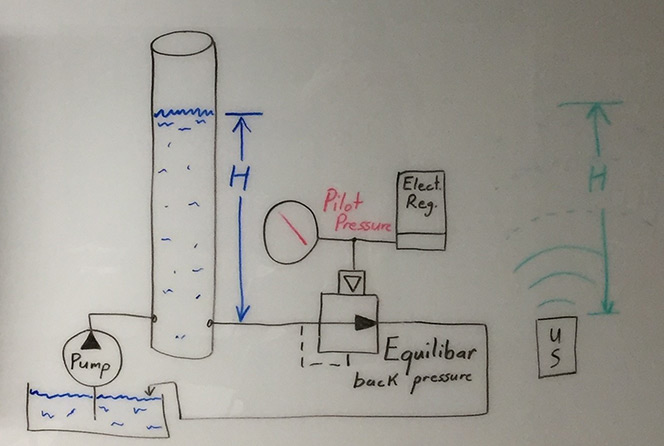 H
Pilot
Pressure
Elect.
Reg.
H
Pump
Equilibar
back pressure
U
S